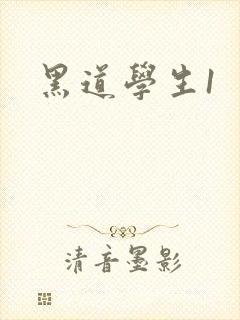 黑道學生1
清音墨影